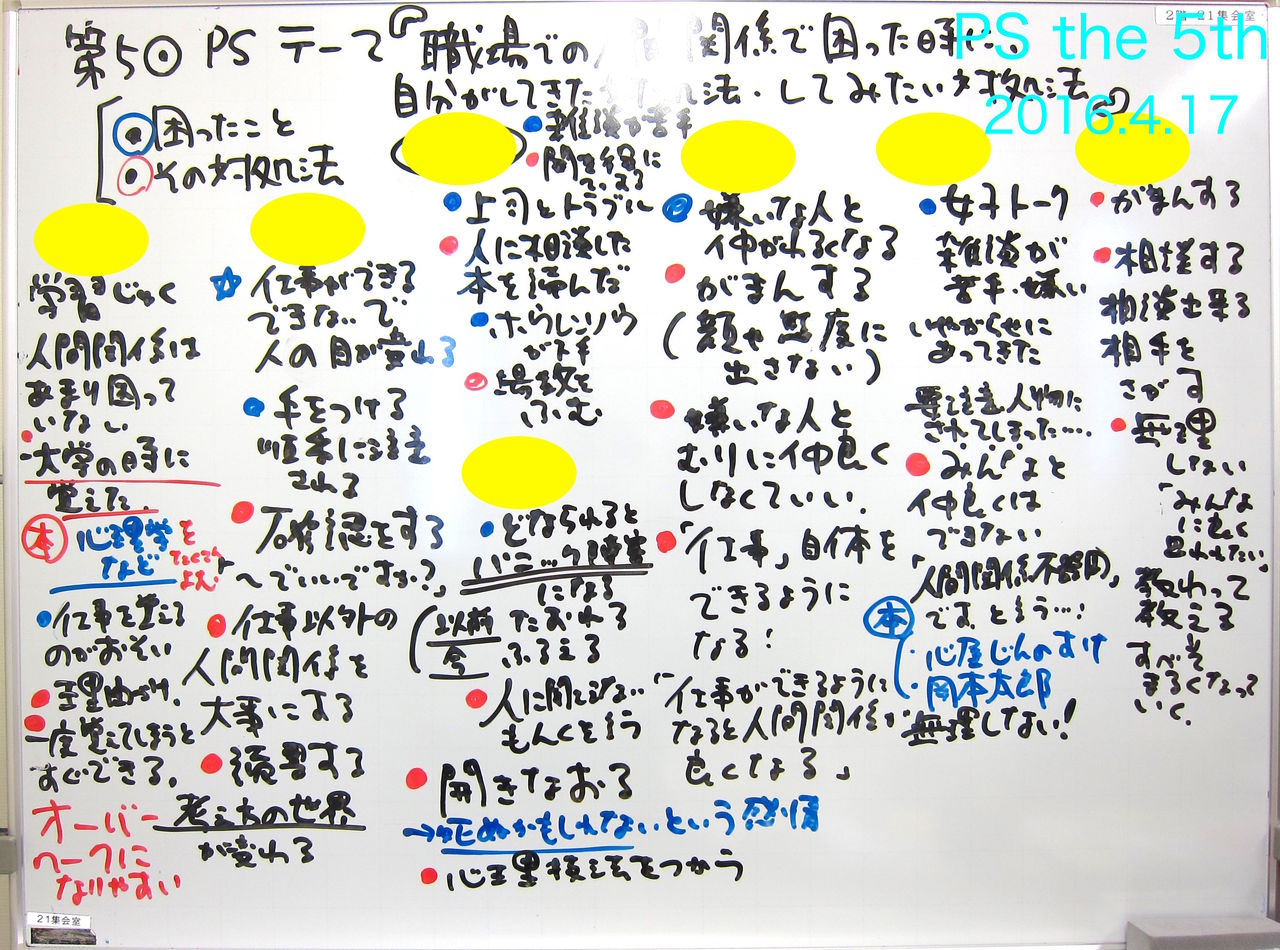 2階 21集会室
PS the 5th
2016.4.17
第5⊙ PS テーマ『職場での人間関係で困った時に、
自分がしてきた対処法・してみたい対処法』
困ったこと
その対処法
学習じゅく
人間関係は
あまり困って
いない
大学の時に
覚えた。
本 心理学を
など
たくさん
よんだ
仕事を覚える
のがおそい
一度覚えてしまうと
すぐできる。
オーバー
ワークに
なりやすい
仕事ができる
できない…で
人の目が変わる
手をつける
順番に注意
される
確認をする
「~でいいですか?」
仕事以外の
人間関係を
大事にする
練習する
考え方の世界
が変わる
雑談が苦手
聞き役に
まわる
上司とトラブル
人に相談した
本を読んだ
ホウレンソウ
が下手
場数を
ふむ
どなられると
パニック障害
になる
以前 たおれる
今 ふるえる
人に聞こえない…
もんくを言う
開きなおる
→死ぬかもしれないという感情
心理技法をつかう
嫌いな人と
仲がわるくなる
がまんする
(顔や態度に
出さない)
嫌いな人と
むりに仲良く
しなくていい。
「仕事」自体を
できるように
なる!
「仕事ができるように
なると人間関係が
良くなる」
女子トーク
雑談が
苦手・嫌い
いやがらせに
あってきた
要注意人物に
されてしまった…
みんなと
仲良くは
できない
「人間関係不器用」
です、と言う…!
本
心屋じんのすけ
岡本太郎
無理しない!
がまんする
相談する
相談出来る
相手を
さがす
無理
しない
「みんな
に良く
思われたい」
教わって
教える
すべて
まるくなって
いく。
21集会室